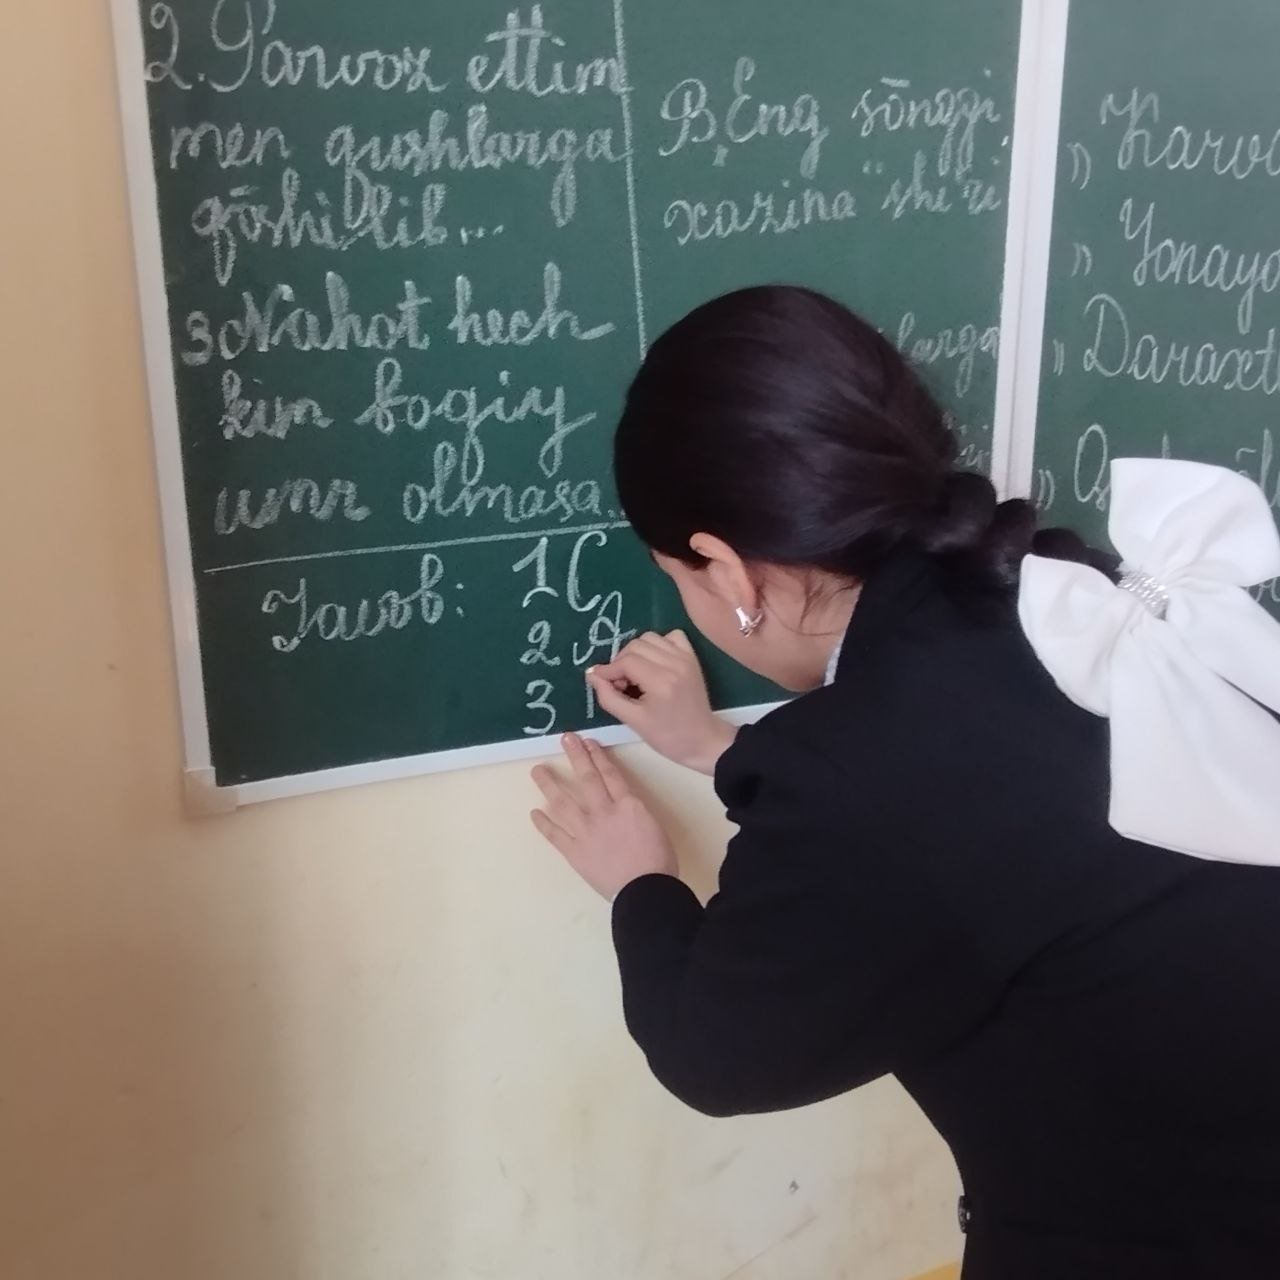 2. Parvoz ettim
men qushlarga
qōshilib...
3. Nahot hech
kim boqiy
umr olmasa...
Javob: 1C
2 A
3
B, Eng sōnggi
xazina" she'ri
larga
"
" Yonaya
" Daraxt
"